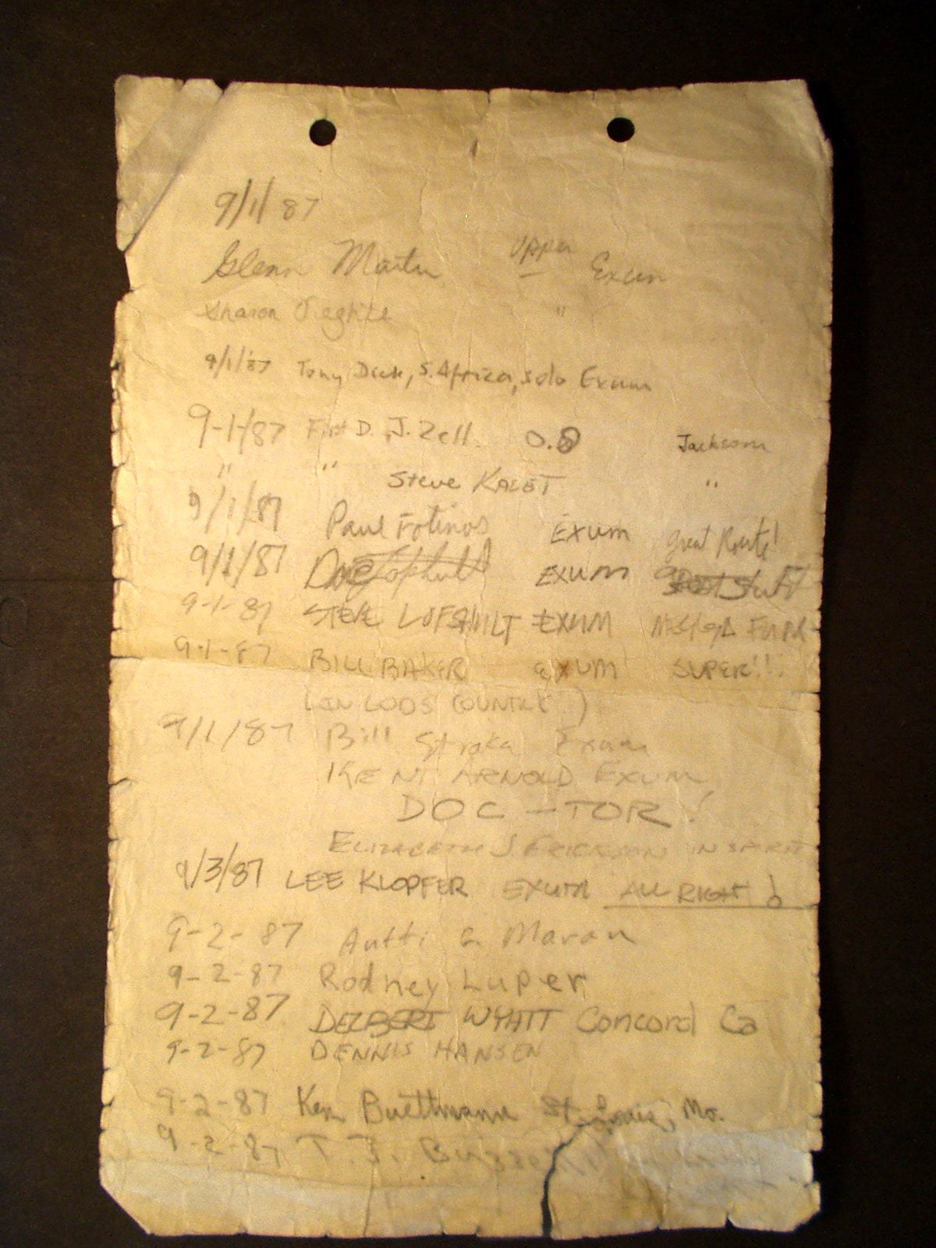 9/1/87
Glenn Martin Upper Exum
Sharon "
9/1/87 Tony Dick, S. Africa, solo Exum
9-1/87 D. J. Zell. O.S Jackson
" " Steve "
9/1/87 Paul Fotinos EXUM great Route!
9/1/87 EXUM
9-1-87 STEVE EXUM
9-1-87 BILL BAKER EXUM SUPER!!
COUNTRY)
9/1/87 Bill Straka Exum
KENT ARNOLD EXUM
DOC-TOR!
ELIZABETH J ERICKSON IN
9/3/87 LEE KLOPFER EXUM ALL RIGHT!
9-2-87 Antti
9-2-87 Rodney Luper
9-2-87 DELBERT WYATT Concord Ca
9-2-87 DENNIS HANSEN
9-2-87 Ken Buettmann St. Louis, Mo.
9-2-87 T. J.